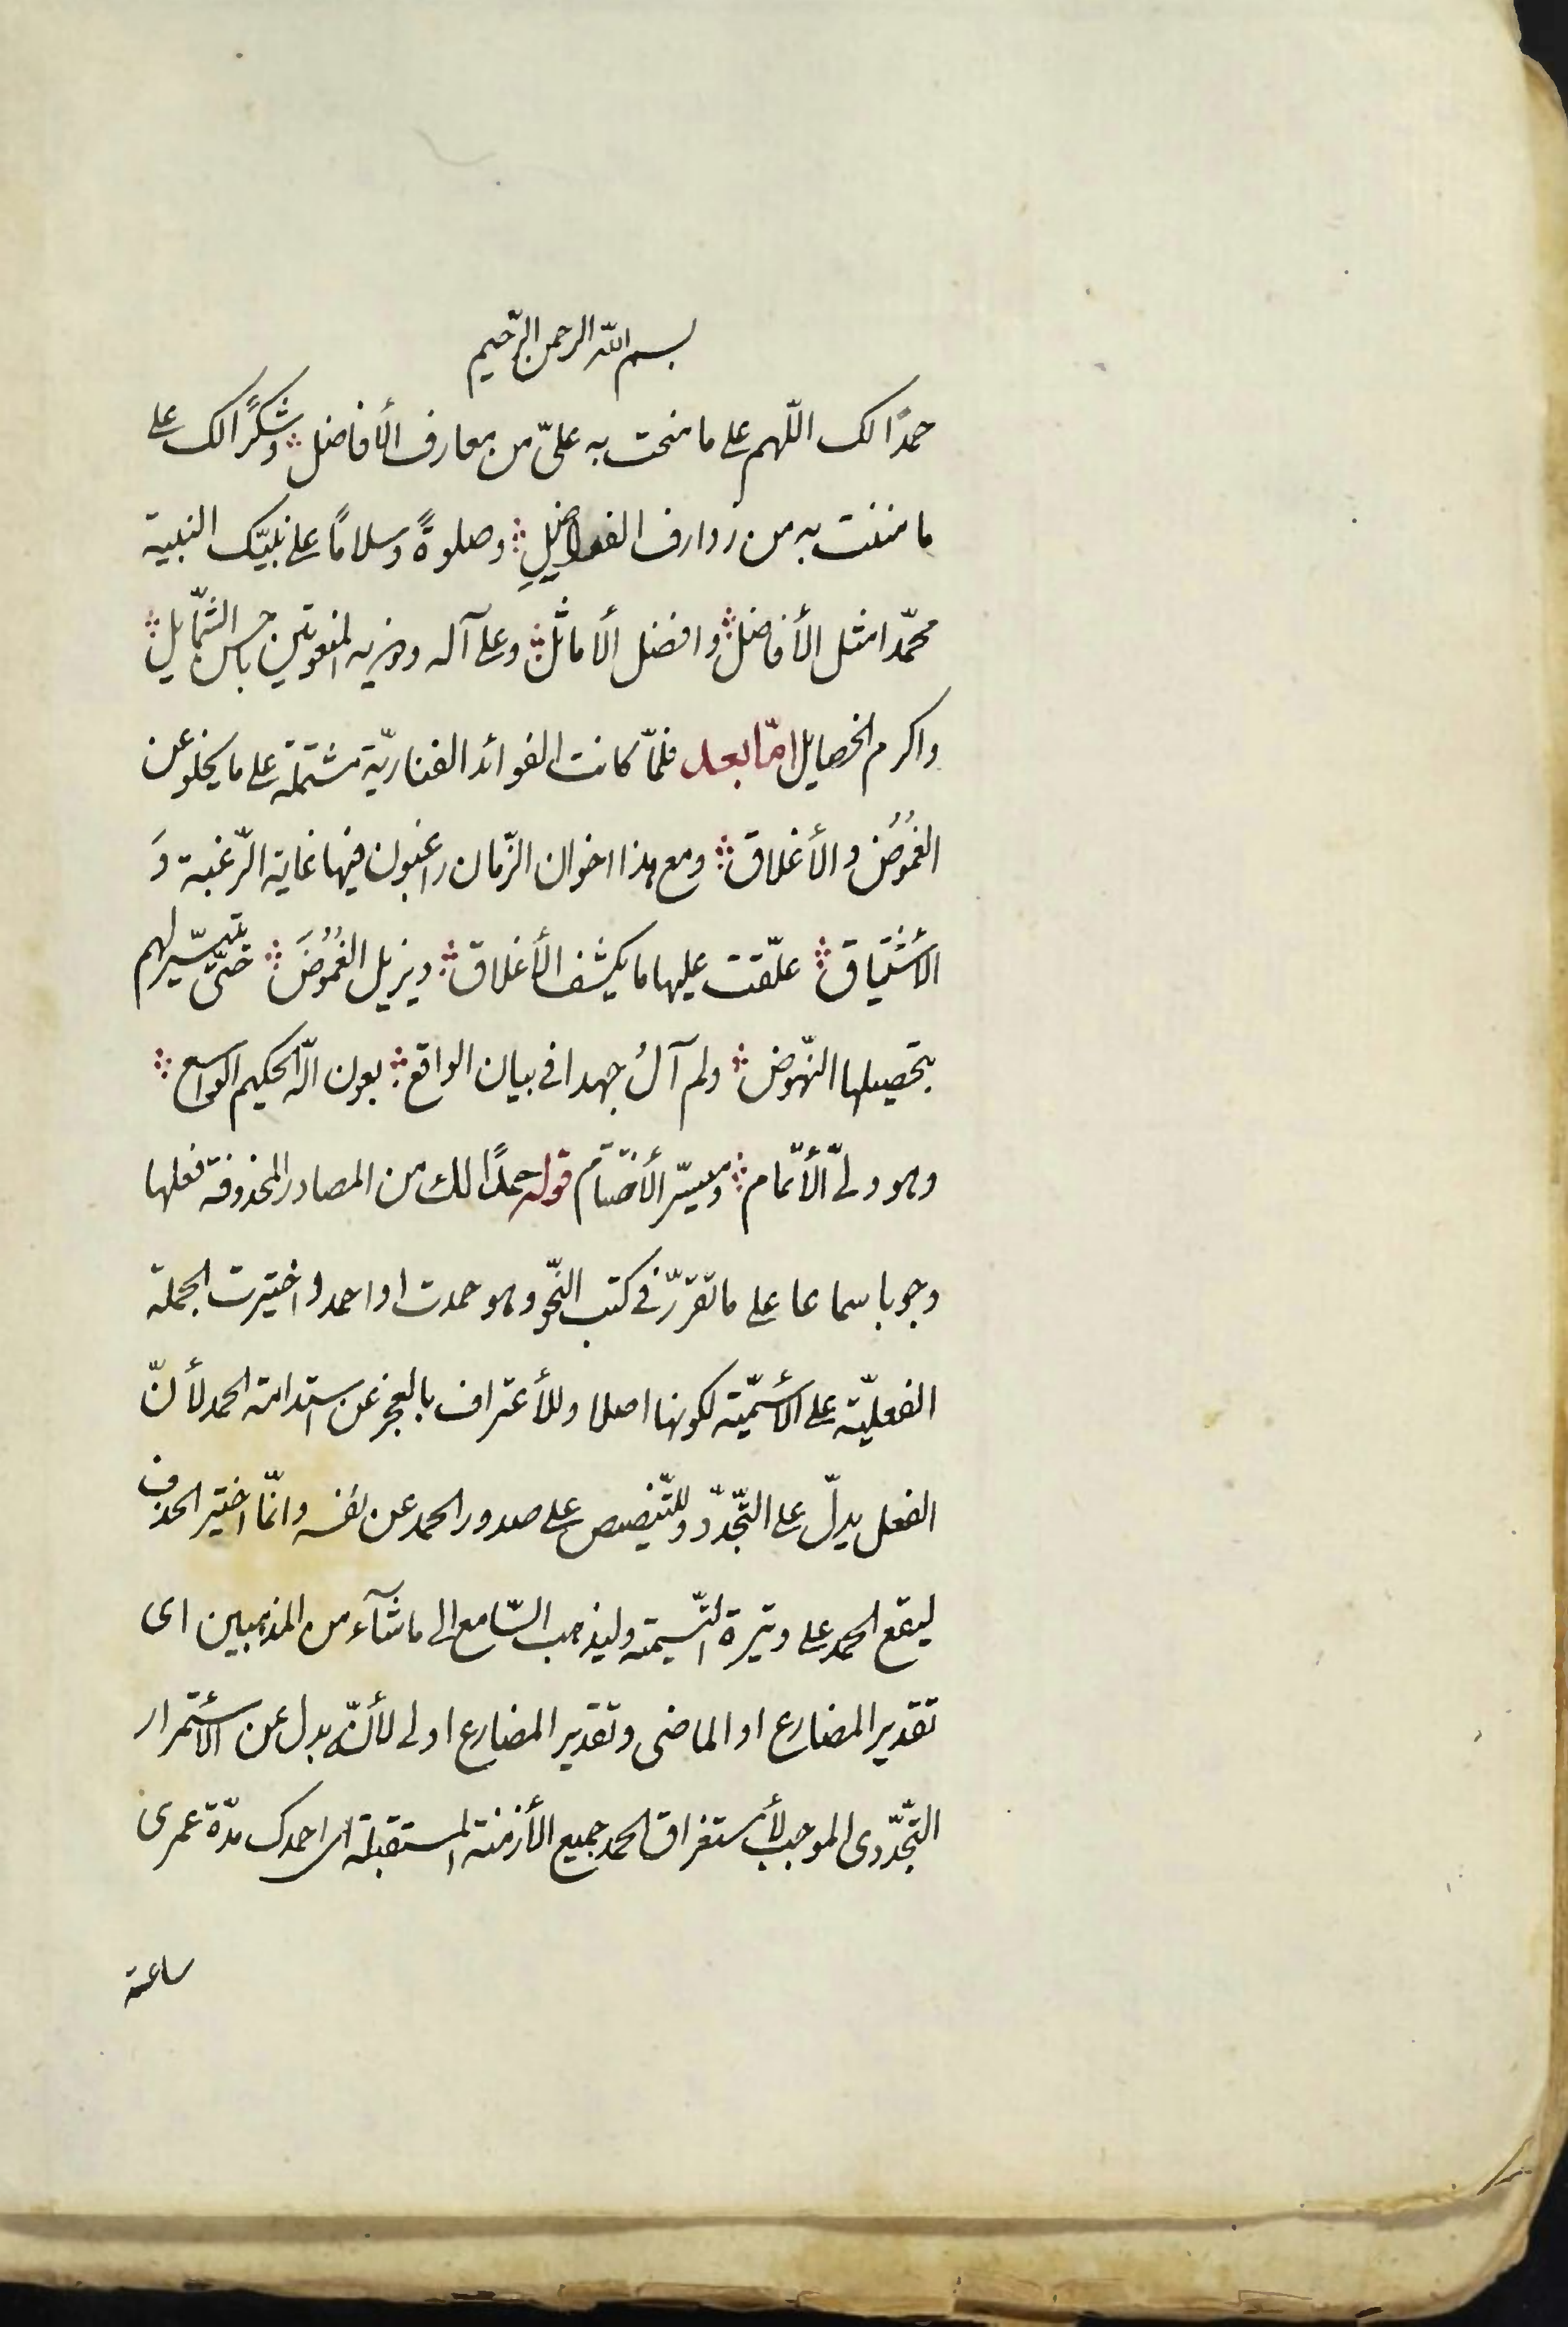 بسم الله الرحمن الرّحيم
حمدًا لك اللّهم على ما منحت به علىّ من معارف الأفاضل ؞ وشكرًا لك على
ما مننت به من روارف الفواضلِ ؞ وصلوةً وسلامًا على نبيّك النبيه
محمّد امثل الأفاضل ؞ وافضل الأماثل ؞ وعلى آله وذريه المنعوتين باحسن الشّمايل ؞
واكرم الخصايل امّا بعد فلمّا كانت الفوائد الفناريّة مشتملة على ما يخلو عن
الغُمُوض والأغلاق ؞ ومع هذا اخوان الزّمان راغبون فيها غاية الرّغبة وَ
الأشتياق ؞ علّقت عليها ما يكشف الأغلاق ؞ ويزيل الغُمُوضَ ؞ حتّى يتيسّر لهم
بتحصيلها النّهوض ؞ ولم آلُ جهدا فى بيان الواقع ؞ بعون الله الحكيم الواسع ؞
وهو ولىّ الأتمام ؞ وميسّر الأختتام قوله حمدًا لك من المصادر المحذوفة فعلها
وجوبا سماعا على ما تقرّر فى كتب النّحو وهو حمدت او احمد واختيرت الجملة
الفعليّة على الأسميّة لكونها اصلا وللأعتراف بالعجز عن استدامة الحمد لأنّ
الفعل يدلّ على التّجدّد وللتّنصيص على صدور الحمد عن نفسه وانّما اختير الحذف
ليقع الحمد على وتيرة التّسيمة وليذهب السّامع الى ما شآء من المذهبين اى
تقدير المضارع او الماضى وتقدير المضارع اولى لأنّه بدل عن الأستمرار
التّجدّدى الموجب لأستغراق الحمد جميع الأزمنة المستقبلة اى احمدك مدّة عمرى
ساعة